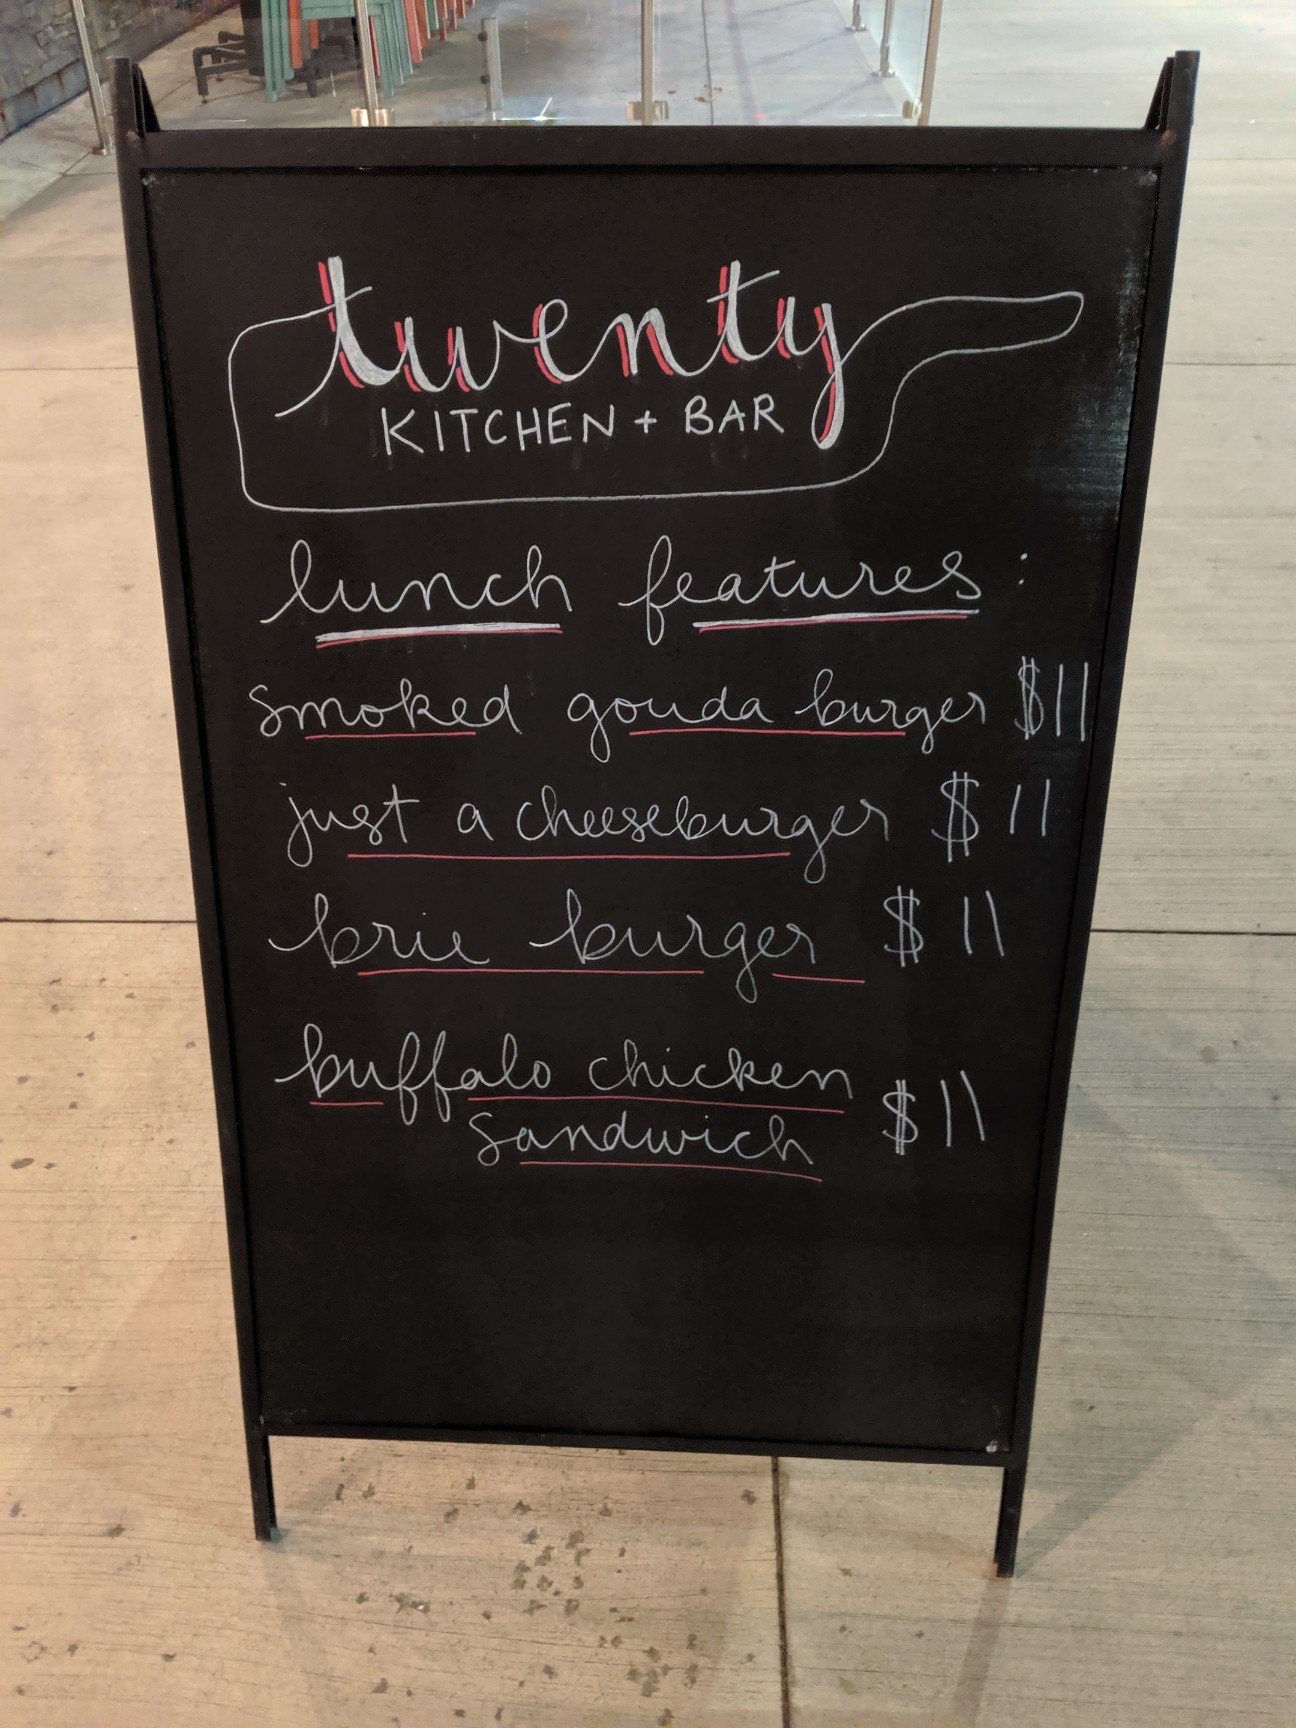 twenty
KITCHEN + BAR
lunch features:
smoked gouda burger $11
just a cheeseburger $11
brie burger $11
buffalo chicken
sandwich $11